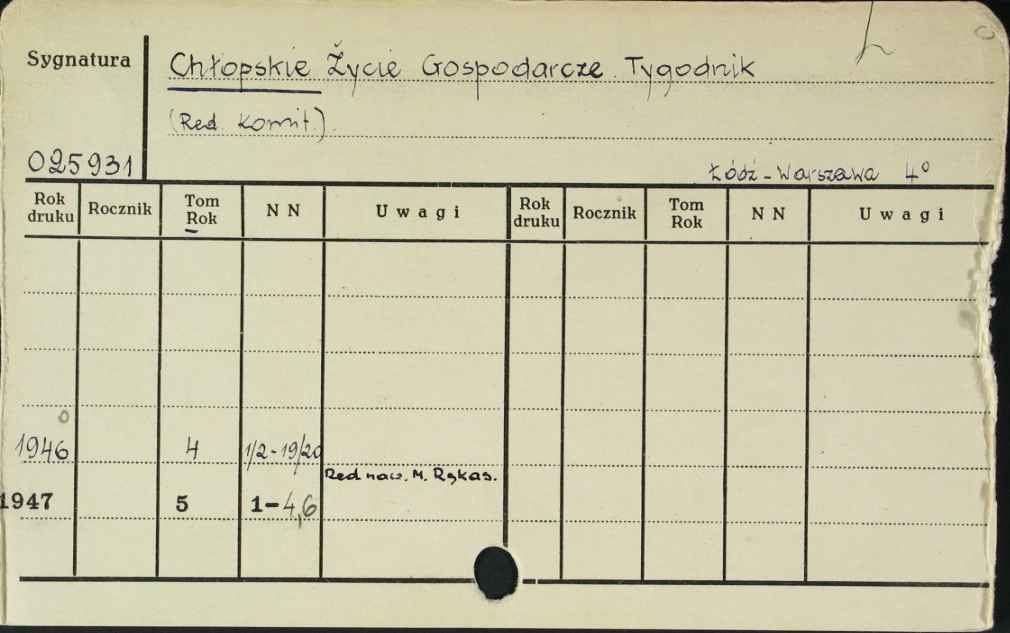 Sygnatura
Chłopskie Życie Gospodarcze. Tygodnik
(Red. Komit.)
025931
Łódź - Warszawa 4°
Rok druku Rocznik Tom Rok N N Uwagi Rok druku Rocznik Tom Rok N N Uwagi
1946 4 1/2-19/20
Red nacz. M. Rękas.
1947 5 1-4,6